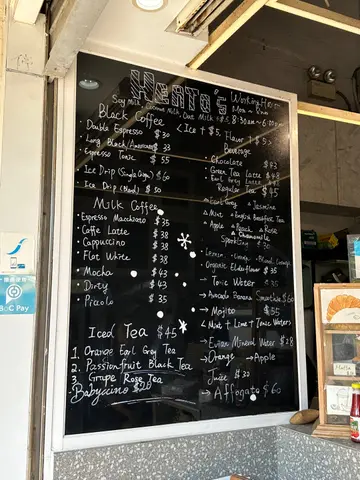 HeATo's
Working Hours
Mon ~ Sun
8:30am ~ 6:00pm
Soy Milk, Oat Milt +$5
Black Coffee
<Ice + $5>
· Double Espresso $30
· Long Black/Americano $33
· Espresso Tonic $55
· Ice Drip (Single Origin) $60
· Ice Drip (Mood) $50
Milk Coffee
· Espresso Macchiato $35
· Caffe Latte $38
· Cappuccino $38
· Flat White $38
· Mocha $43
· Dirty $43
· Piccolo $35
Iced Tea $45
1. Orange Earl Grey Tea
2. Passionfruit Black Tea
3. Grape Rose Tea
Babyccino $20
Flavor +$5>
Beverage
· Chocolate $43
· Green Tea Latte $43
· Earl Grey Latte
· Regular Tea $45
Earl Grey Jasmine
Mint English Breakfast Tea
Apple Peach Rose
Chamomile
· Sparkling $30
Lemon
· Organic Elderflower $35
· Tonic Water
→ Avocado Banana Smoothie $60
→ Mojito $55
<Mint + Lime + Tonic Water>
→ Evian Mineral Water $28
→ Orange → Apple
Juice $30
→ Affogato $60
BoC Pay